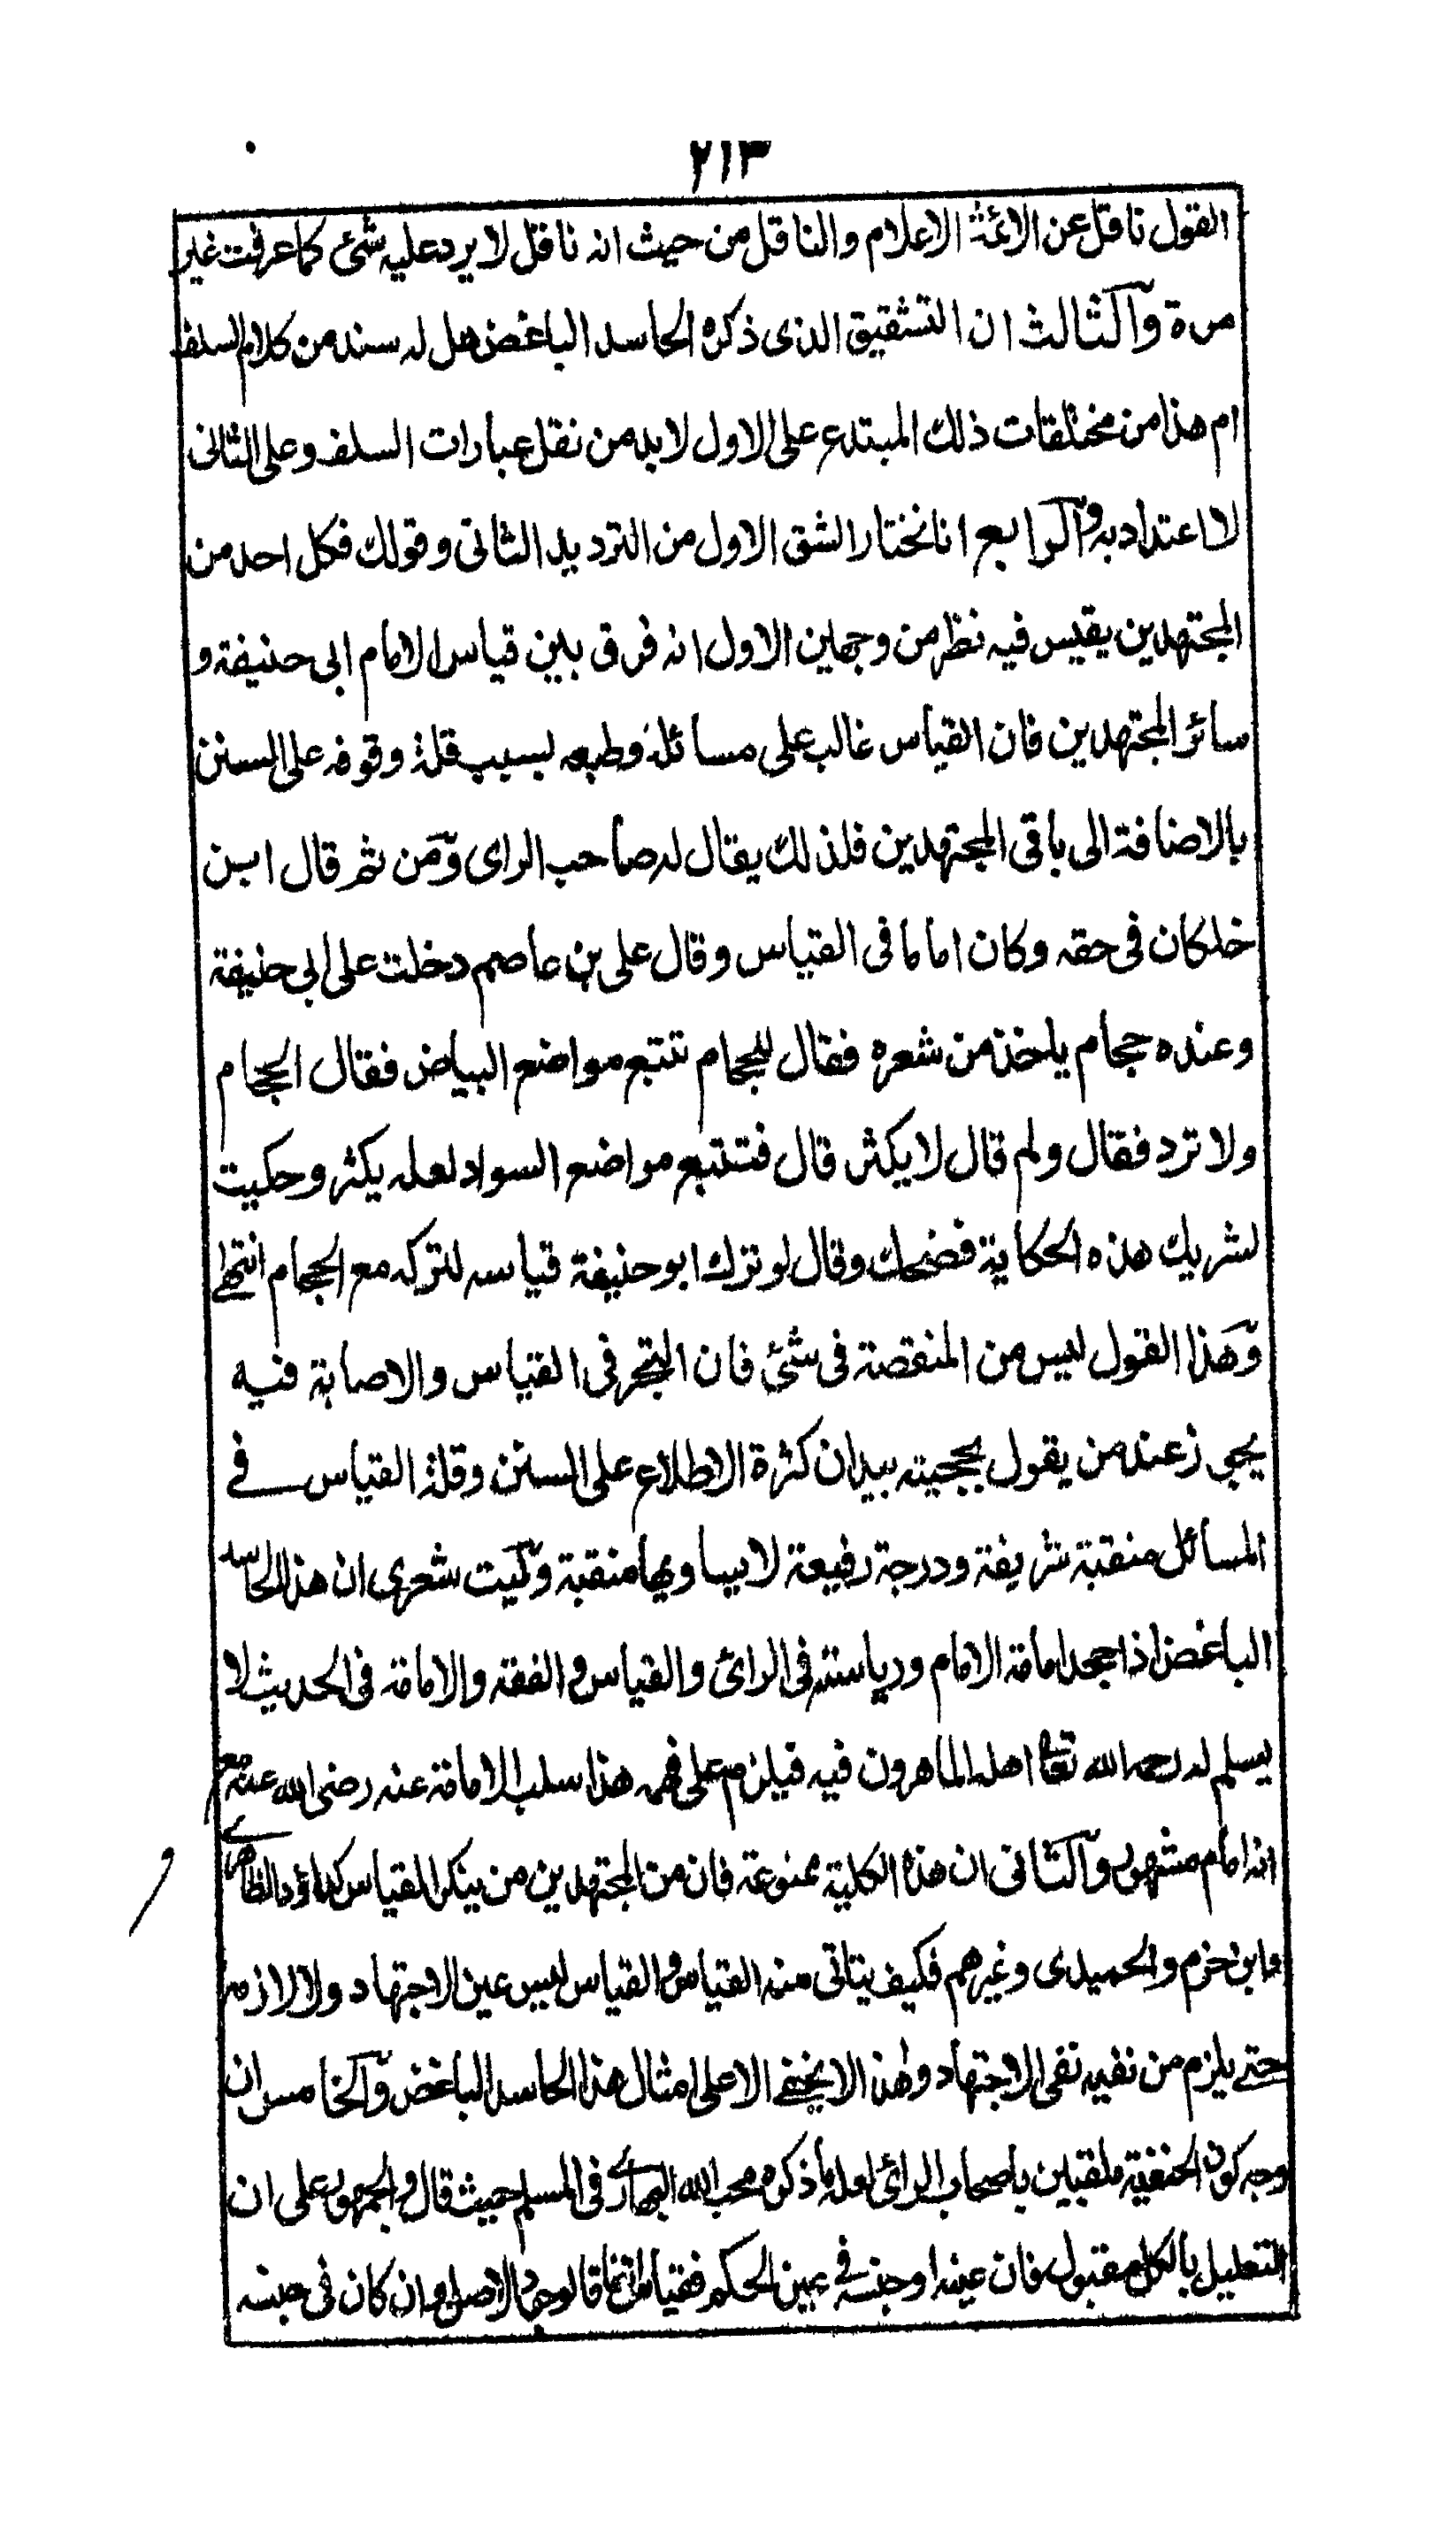 ٢١٣
القول ناقل عن الائمة الاعلام والناقل من حيث انه ناقل لا يرد عليه شئ كما عرفت غير
مرة والثالث ان التشقيق الذى ذكره الحاسد الباغض هل له سند من كلام السلف
ام هذا من مختلقات ذلك المبتدع على الاول لا بد من نقل عبارات السلف وعلى الثانى
لا اعتداد به والرابع انا نختار الشق الاول من الترديد الثانى وقولك فكل احد من
المجتهدين يقيس فيه نظر من وجهين الاول انه فرق بين قياس الامام ابى حنيفة و
سائر المجتهدين فان القياس غالب على مسائله وطبعه بسبب قلة وقوفه على السنن
بالاضافة الى باقى المجتهدين فلذلك يقال له صاحب الراى ومن ثم قال ابن
خلكان فى حقه وكان اماما فى القياس وقال على بن عاصم دخلت على ابى حنيفة
وعنده حجام ياخذ من شعره فقال للحجام تتبع مواضع البياض فقال الحجام
ولا ترد فقال ولم قال لا يكثر قال فتتبع مواضع السواد لعله يكثر وحكيت
لشريك هذه الحكاية فضحك وقال لو ترك ابو حنيفة قياسه لتركه مع الحجام انتهى
وهذا القول ليس من المنقصة فى شئ فان التبحر فى القياس والاصابة فيه
يجوز عند من يقول بحجيته بيد ان كثرة الاطلاع على السنن وقلة القياس فى
المسائل منقبة شريفة ودرجة رفيعة لا يساويها منقبة وليت شعرى ان هذا الحاسد
الباغض اذا جحد امامة الامام ورياسته فى الرائ والقياس و الفقه والامامة فى الحديث لا
يسلم له رحمه الله تعالى اهله الماهرون فيه فيلزم على فهمه هذا سلب الامامة عنه رضى الله عنه مع
انه امام مشهور والثانى ان هذه الكلية ممنوعة فان من المجتهدين من ينكر القياس كداؤد الظاهرى
و
وابن حزم والحميدى وغيرهم فكيف يتاتى منه القياس والقياس ليس عين الاجتهاد ولا لازمه
حتى يلزم من نفيه نفى الاجتهاد وهذا لا يخفى الا على امثال هذا الحاسد الباغض والخامس ان
وجه كون الحنفية ملقبين باصحاب الرائ لعله ما ذكره محب الله البهارى فى المسلم حيث قال والجمهور على ان
التعليل بالكل مقبول فان عينه او جنسه فى عين الحكم فقياس اتفاقا لوجود الاصل وان كان فى جنسه